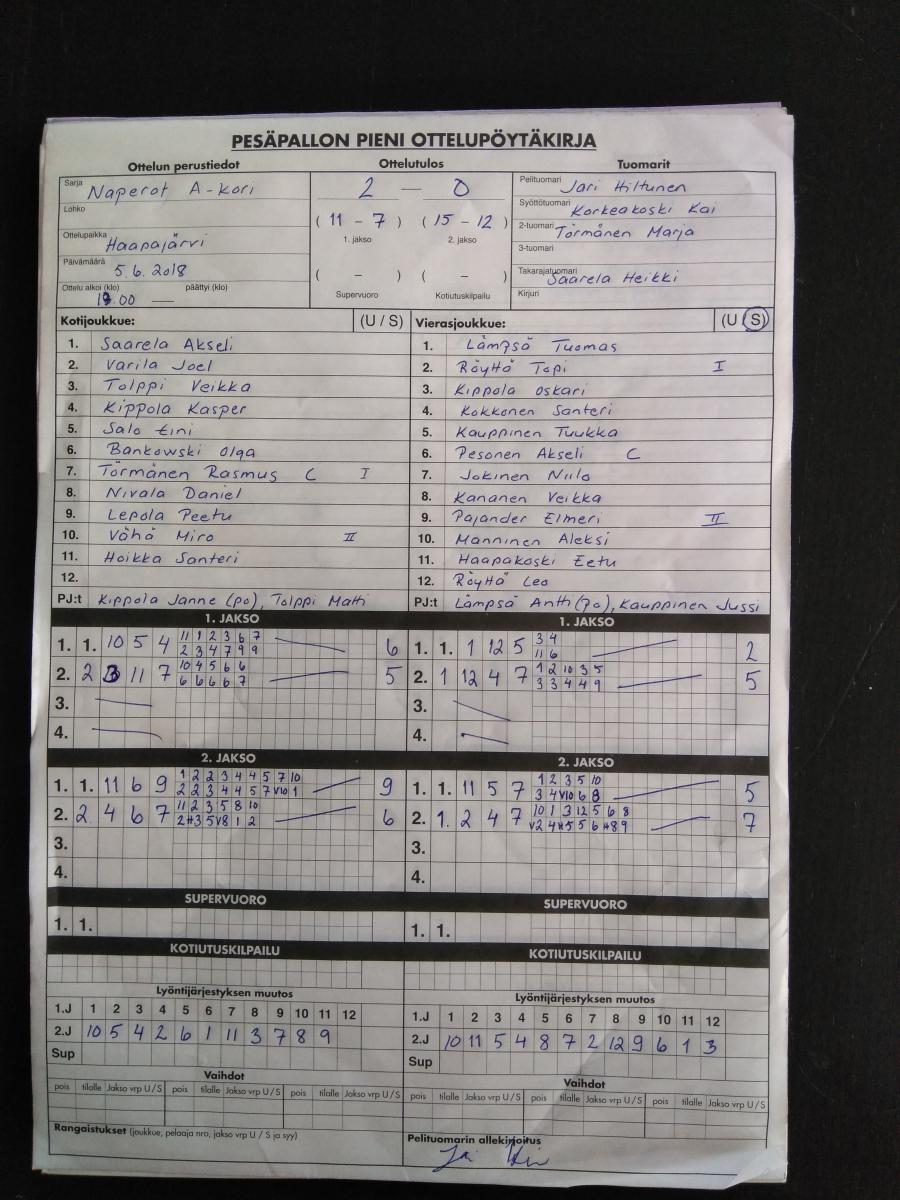 PESÄPALLON PIENI OTTELUPÖYTÄKIRJA
Ottelun perustiedot Ottelutulos Tuomarit
Sarja Naperot A-Kori
Lohko
Ottelupaikka Haapajärvi
Päivämäärä 5.6.2018
Ottelu alkoi (klo) päättyi (klo)
.00 —
2 — 0
( 11 - 7 ) ( 15 - 12 )
1. jakso 2. jakso
( - ) ( - )
Supervuoro Kotiutuskilpailu
Pelituomari Jari Hiltunen
Syöttötuomari Korkeakoski Kai
2-tuomari Törmänen Marja
3-tuomari
Takarajatuomari Saarela Heikki
Kirjuri
Kotijoukkue: (U / S)
1. Saarela Akseli
2. Varila Joel
3. Tolppi Veikka
4. Kippola Kasper
5. Salo Eini
6. Bankowski Olga
7. Törmänen Rasmus C I
8. Nivala Daniel
9. Lepola Peetu
10. Vähä Miro II
11. Hoikka Santeri
12.
PJ:t Kippola Janne (po), Tolppi Matti
Vierasjoukkue: (U / S)
1. Lämpsä Tuomas
2. Röyttä Topi I
3. Kippola Oskari
4. Kokkonen Santeri
5. Kauppinen Tuukka
6. Pesonen Akseli C
7. Jokinen Niilo
8. Kananen Veikka
9. Pajander Elmeri II
10. Manninen Aleksi
11. Haapakoski Eetu
12. Röyttä Leo
PJ:t Lämpsä Antti (po), Kauppinen Jussi
1. JAKSO
1. 1. 10 5 4 11 1 2 3 6 7 6
2 3 4 7 9 9
2. 2 3 11 7 10 4 5 6 6 5
6 6 6 6 7
3.
4.
1. JAKSO
1. 1. 1 12 5 3 4 2
11 6
2. 1 12 4 7 1 2 10 3 5 5
3 3 4 4 9
3.
4.
2. JAKSO
1. 1. 11 6 9 1 2 2 3 4 4 5 7 10 9
2 2 3 4 4 5 7 V10 1
2. 2 4 6 7 11 2 3 5 8 10 6
2 #3 5 V8 1 2
3.
4.
2. JAKSO
1. 1. 11 5 7 1 2 3 5 10 5
3 4 V10 6 8
2. 1. 2 4 7 10 1 3 12 5 6 8 7
V2 4 #5 5 6 #8 9
3.
4.
SUPERVUORO
1. 1.
SUPERVUORO
1. 1.
KOTIUTUSKILPAILU
KOTIUTUSKILPAILU
Lyöntijärjestyksen muutos
1.J 1 2 3 4 5 6 7 8 9 10 11 12
2.J 10 5 4 2 6 1 11 3 7 8 9
Sup
Lyöntijärjestyksen muutos
1.J 1 2 3 4 5 6 7 8 9 10 11 12
2.J 10 11 5 4 8 7 2 12 9 6 1 3
Sup
Vaihdot
pois tilalle Jakso vrp U / S pois tilalle Jakso vrp U / S pois tilalle Jakso vrp U / S
Vaihdot
pois tilalle Jakso vrp U / S pois tilalle Jakso vrp U / S pois tilalle Jakso vrp U / S
Rangaistukset (joukkue, pelaaja nro, jakso vrp U / S ja syy)
Pelituomarin allekirjoitus